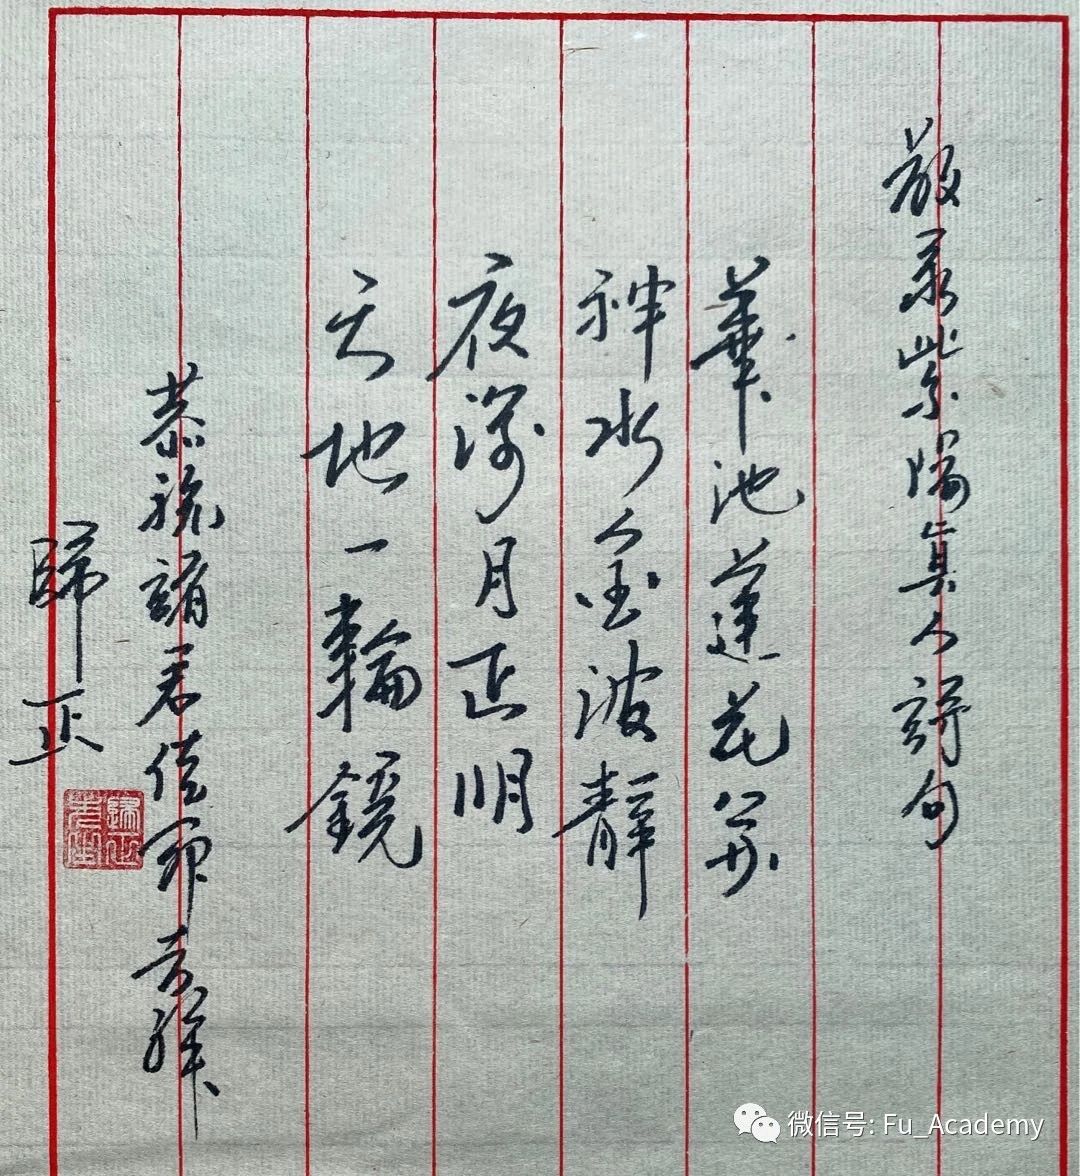 敬录紫陽真人詩句
華池蓮花開
神水金波靜
夜深月正明
天地一輪鏡
恭祝諸君佳節吉祥
歸正
微信号: Fu_Academy